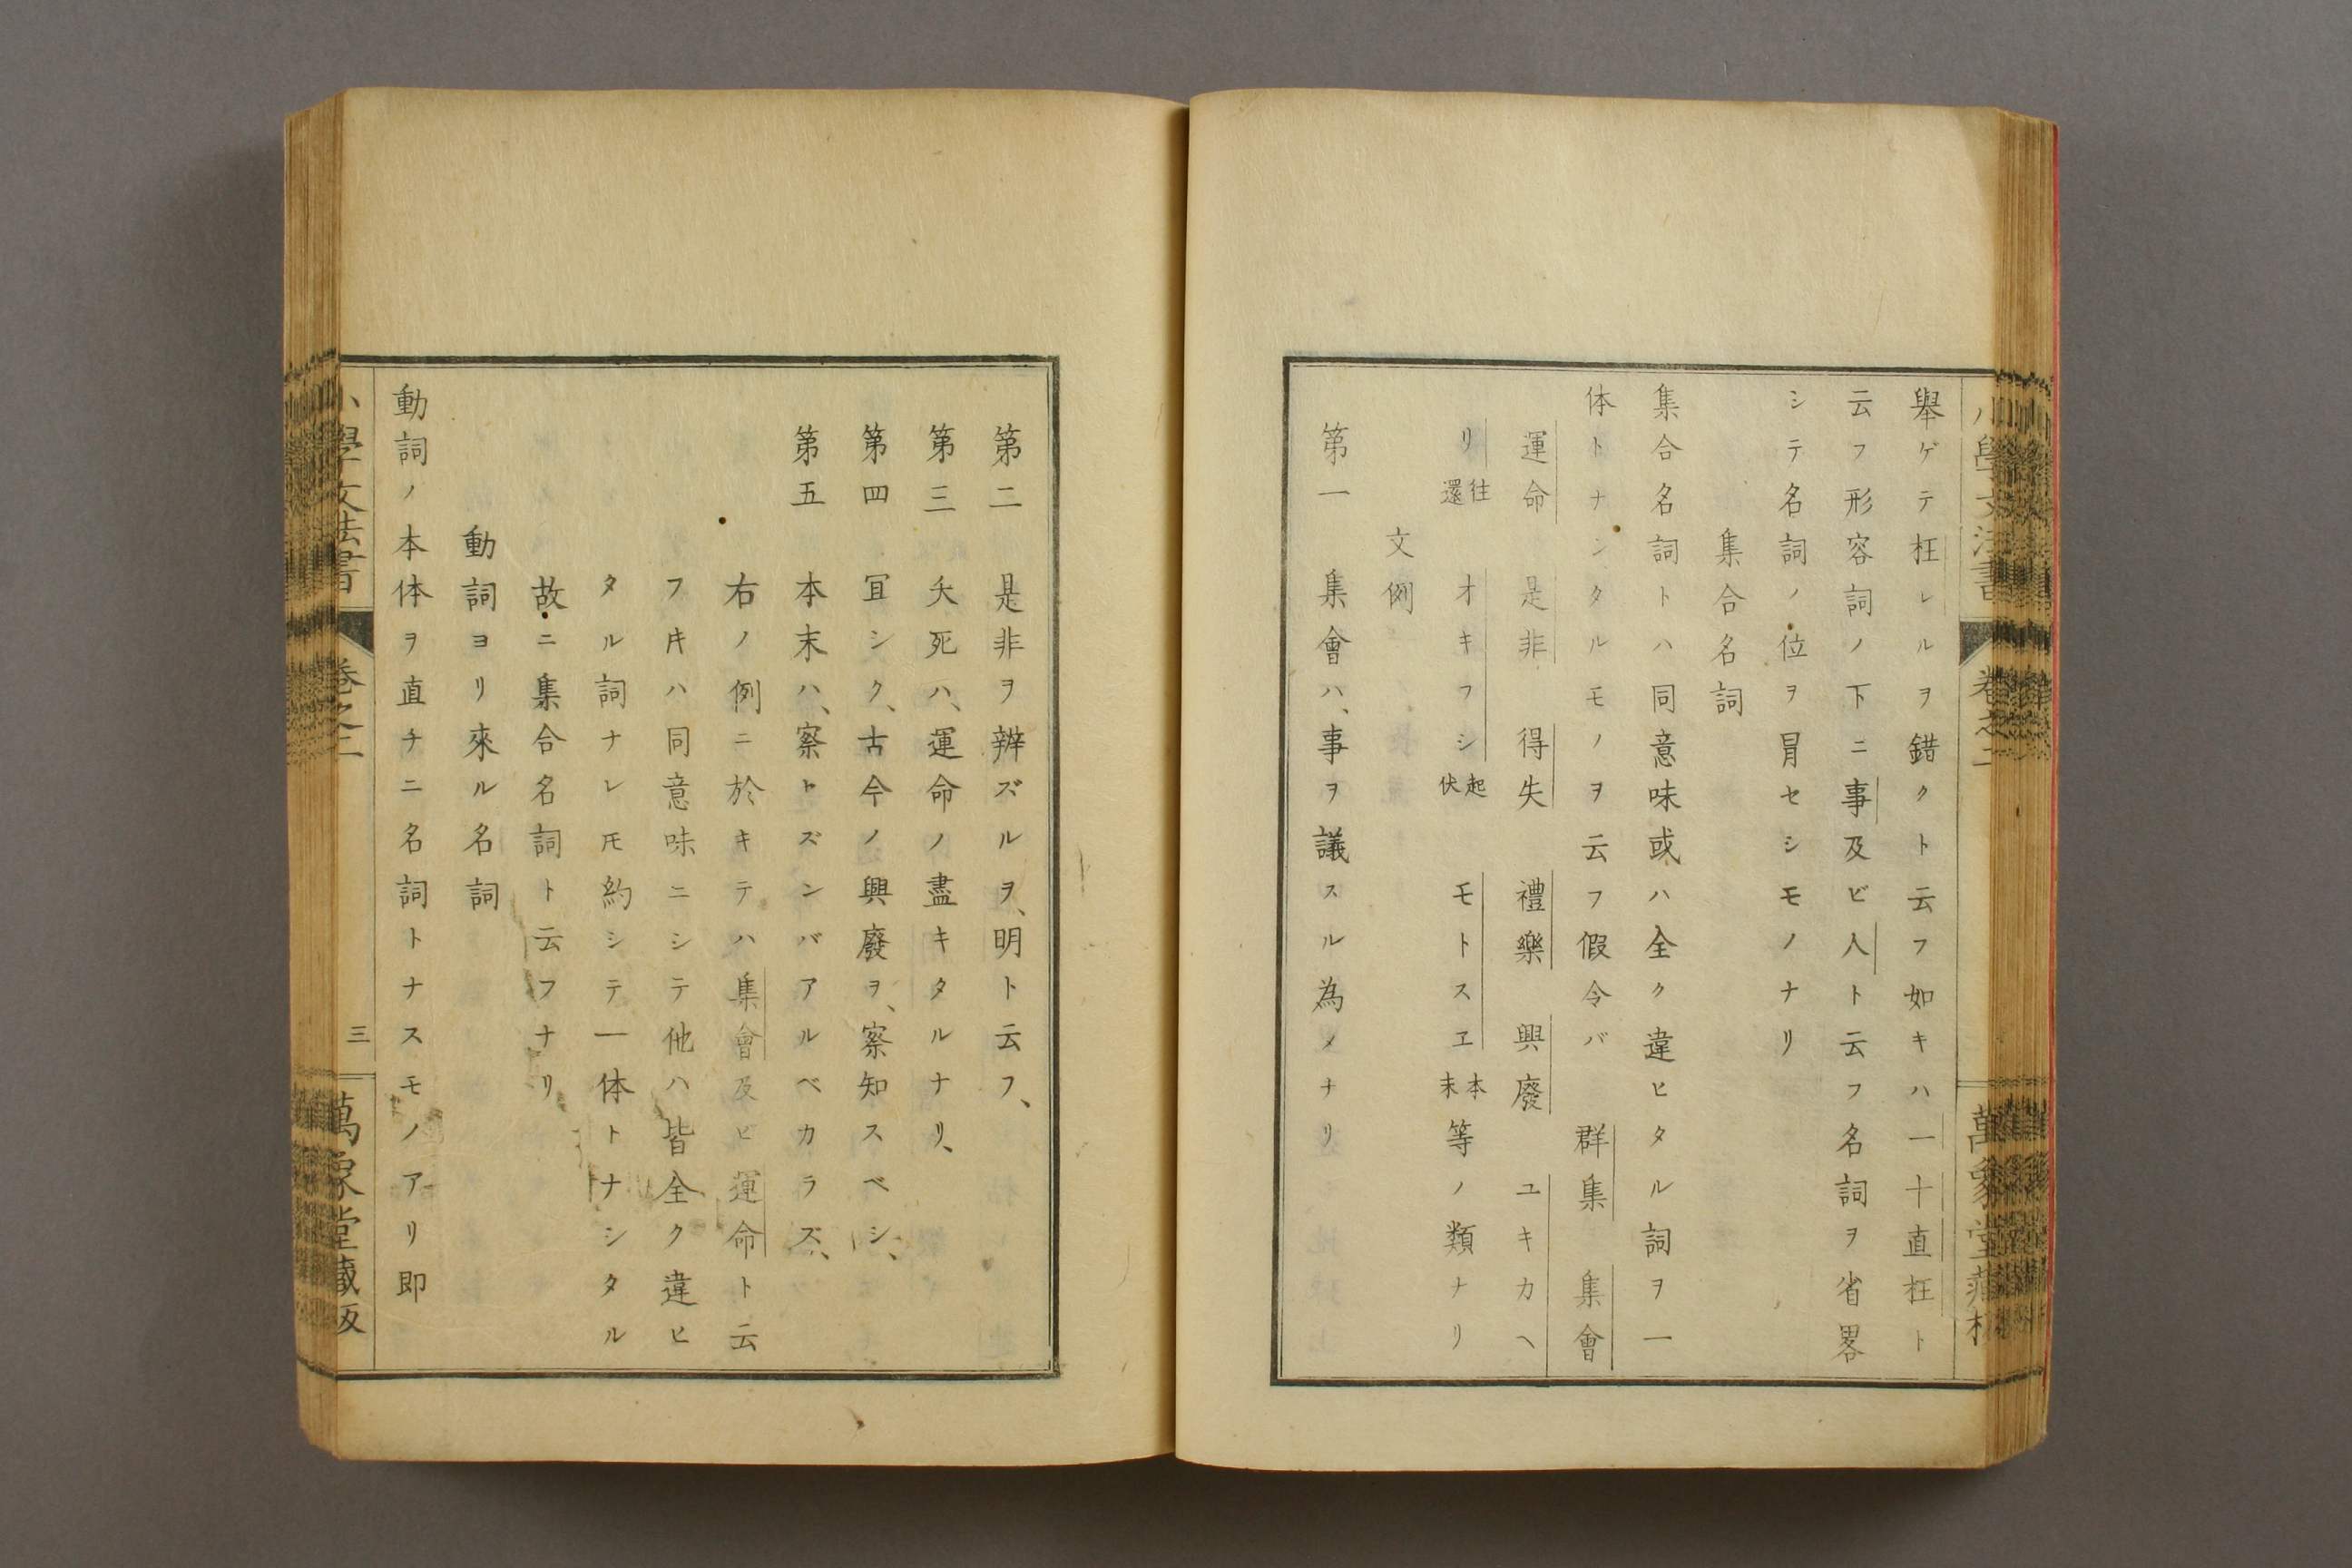 舉ゲテ枉レルヲ錯クト云フ如キハ一十直枉ト
云フ形容詞ノ下ニ事及ビ人ト云フ名詞ヲ省畧
シテ名詞ノ位ヲ冐セシモノナリ
集合名詞
集合名詞トハ同意味或ハ全ク違ヒタル詞ヲ一
体トナシタルモノヲ云フ假令バ 群集 集會
運命 是非 得失 禮樂 興廢 ユキカヘ
リ 往還 オキフシ 起伏 モトスヱ 本末 等ノ類ナリ
文例
第一 集會ハ、事ヲ議スル為メナリ
第二 是非ヲ辨ズルヲ、明ト云フ、
第三 夭死ハ、運命ノ盡キタルナリ、
第四 冝シク、古今ノ興廢ヲ、察知スベシ、
第五 本末ハ、察トズンバアルベカラズ、
右ノ例ニ於キテハ集會及ビ運命ト云
フ𪜈ハ同意味ニシテ他ハ皆全ク違ヒ
タル詞ナレ𪜈約シテ一体トナシタル
故ニ集合名詞ト云フナリ
動詞ヨリ來ル名詞
動詞ノ本体ヲ直チニ名詞トナスモノアリ即
小學文法書 卷之二 三 萬象堂藏版